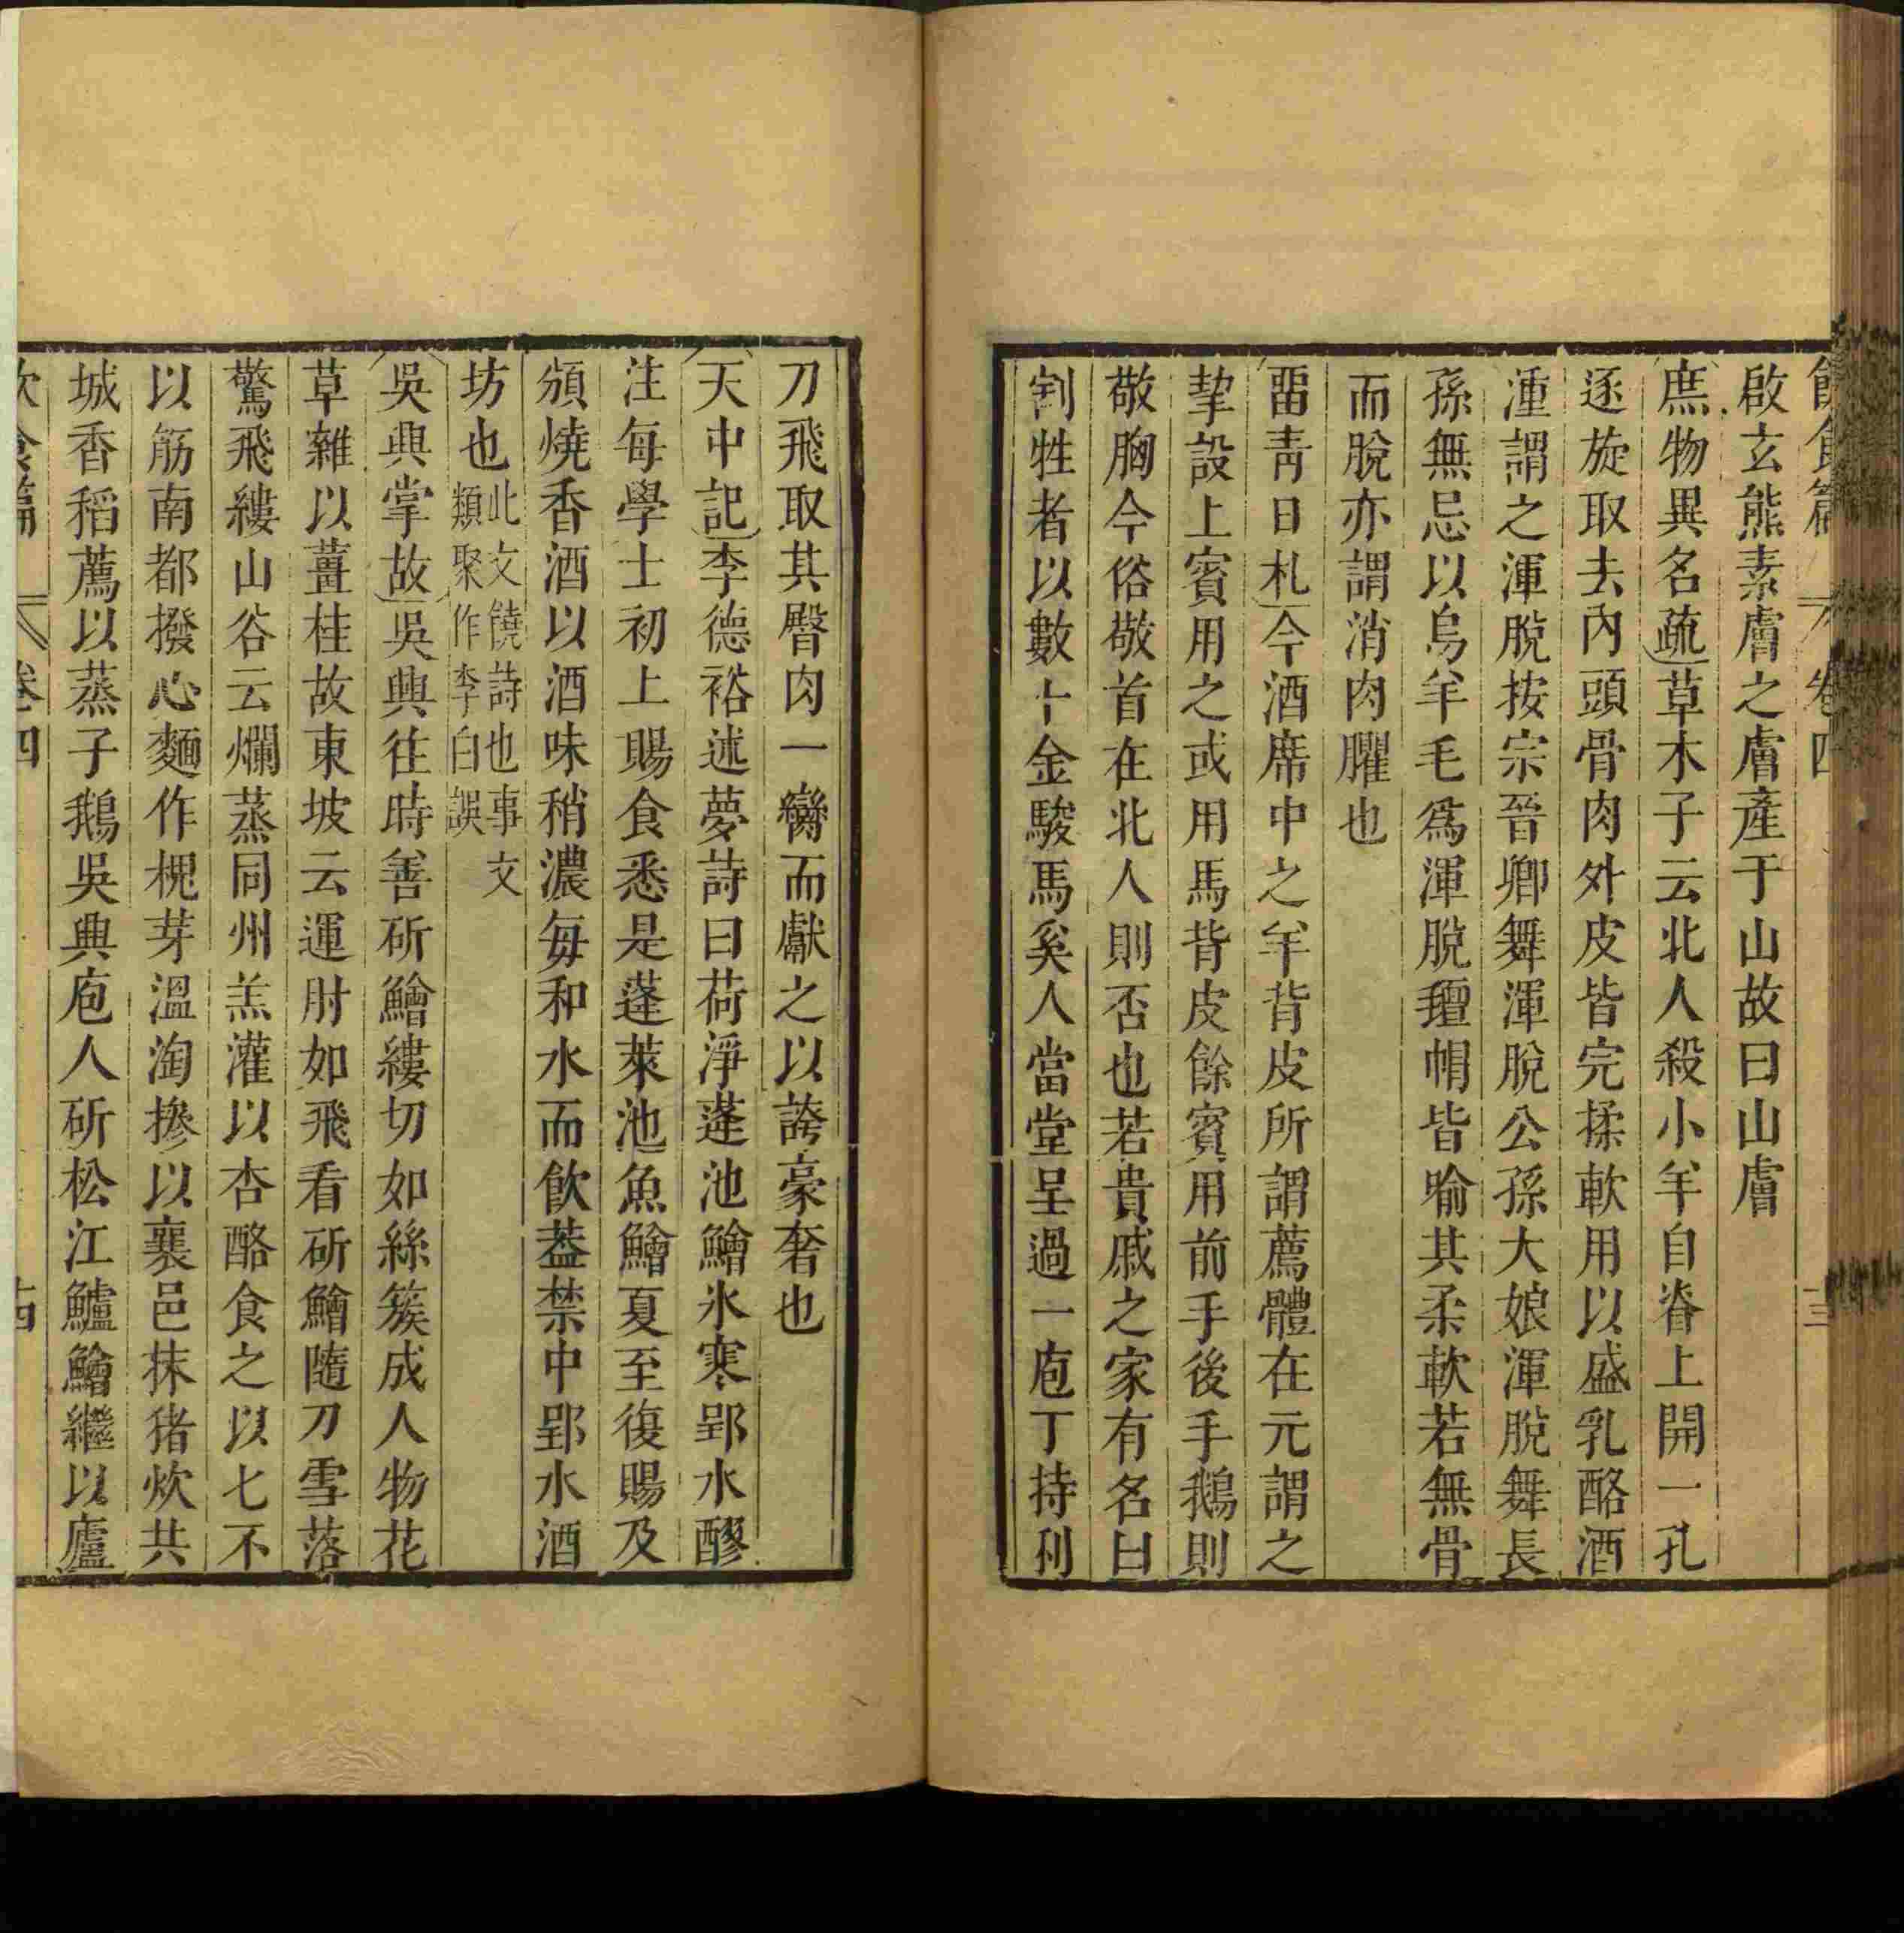 飲食篇 卷四 三
啟玄熊素膚之膚產于山故曰山膚
庶物異名疏草木子云北人殺小羊自脊上開一孔
逐旋取去內頭骨肉外皮皆完揉軟用以盛乳酪酒
湩謂之渾脫按宗晉卿舞渾脫公孫大娘渾脫舞長
孫無忌以烏羊毛爲渾脫氊帽皆喻其柔軟若無骨
而脫亦謂消肉臞也
留青日札今酒席中之羊背皮所謂薦體在元謂之
挈設上賓用之或用馬背皮餘賓用前手後手鵝則
敬胸今俗敬首在北人則否也若貴戚之家有名曰
割牲者以數十金駿馬奚人當堂呈過一庖丁持利
刀飛取其臀肉一臠而獻之以誇豪奢也
天中記李德裕述夢詩曰荷淨蓬池鱠氷寒郢水醪
注每學士初上賜食悉是蓬萊池魚鱠夏至復賜及
頒燒香酒以酒味稍濃每和水而飲葢禁中郢水酒
坊也此文饒詩也事文類聚作李白誤
吳興掌故吳興徃時善斫鱠縷切如絲簇成人物花
草雜以薑桂故東坡云運肘如飛看斫鱠隨刀雪落
驚飛縷山谷云爛蒸同州羔灌以杏酪食之以七不
以筋南都撥心麵作槐芽溫淘摻以襄邑抹猪炊共
城香稻薦以蒸子鵝吳興庖人斫松江鱸鱠繼以廬
飲食篇 卷四 古四